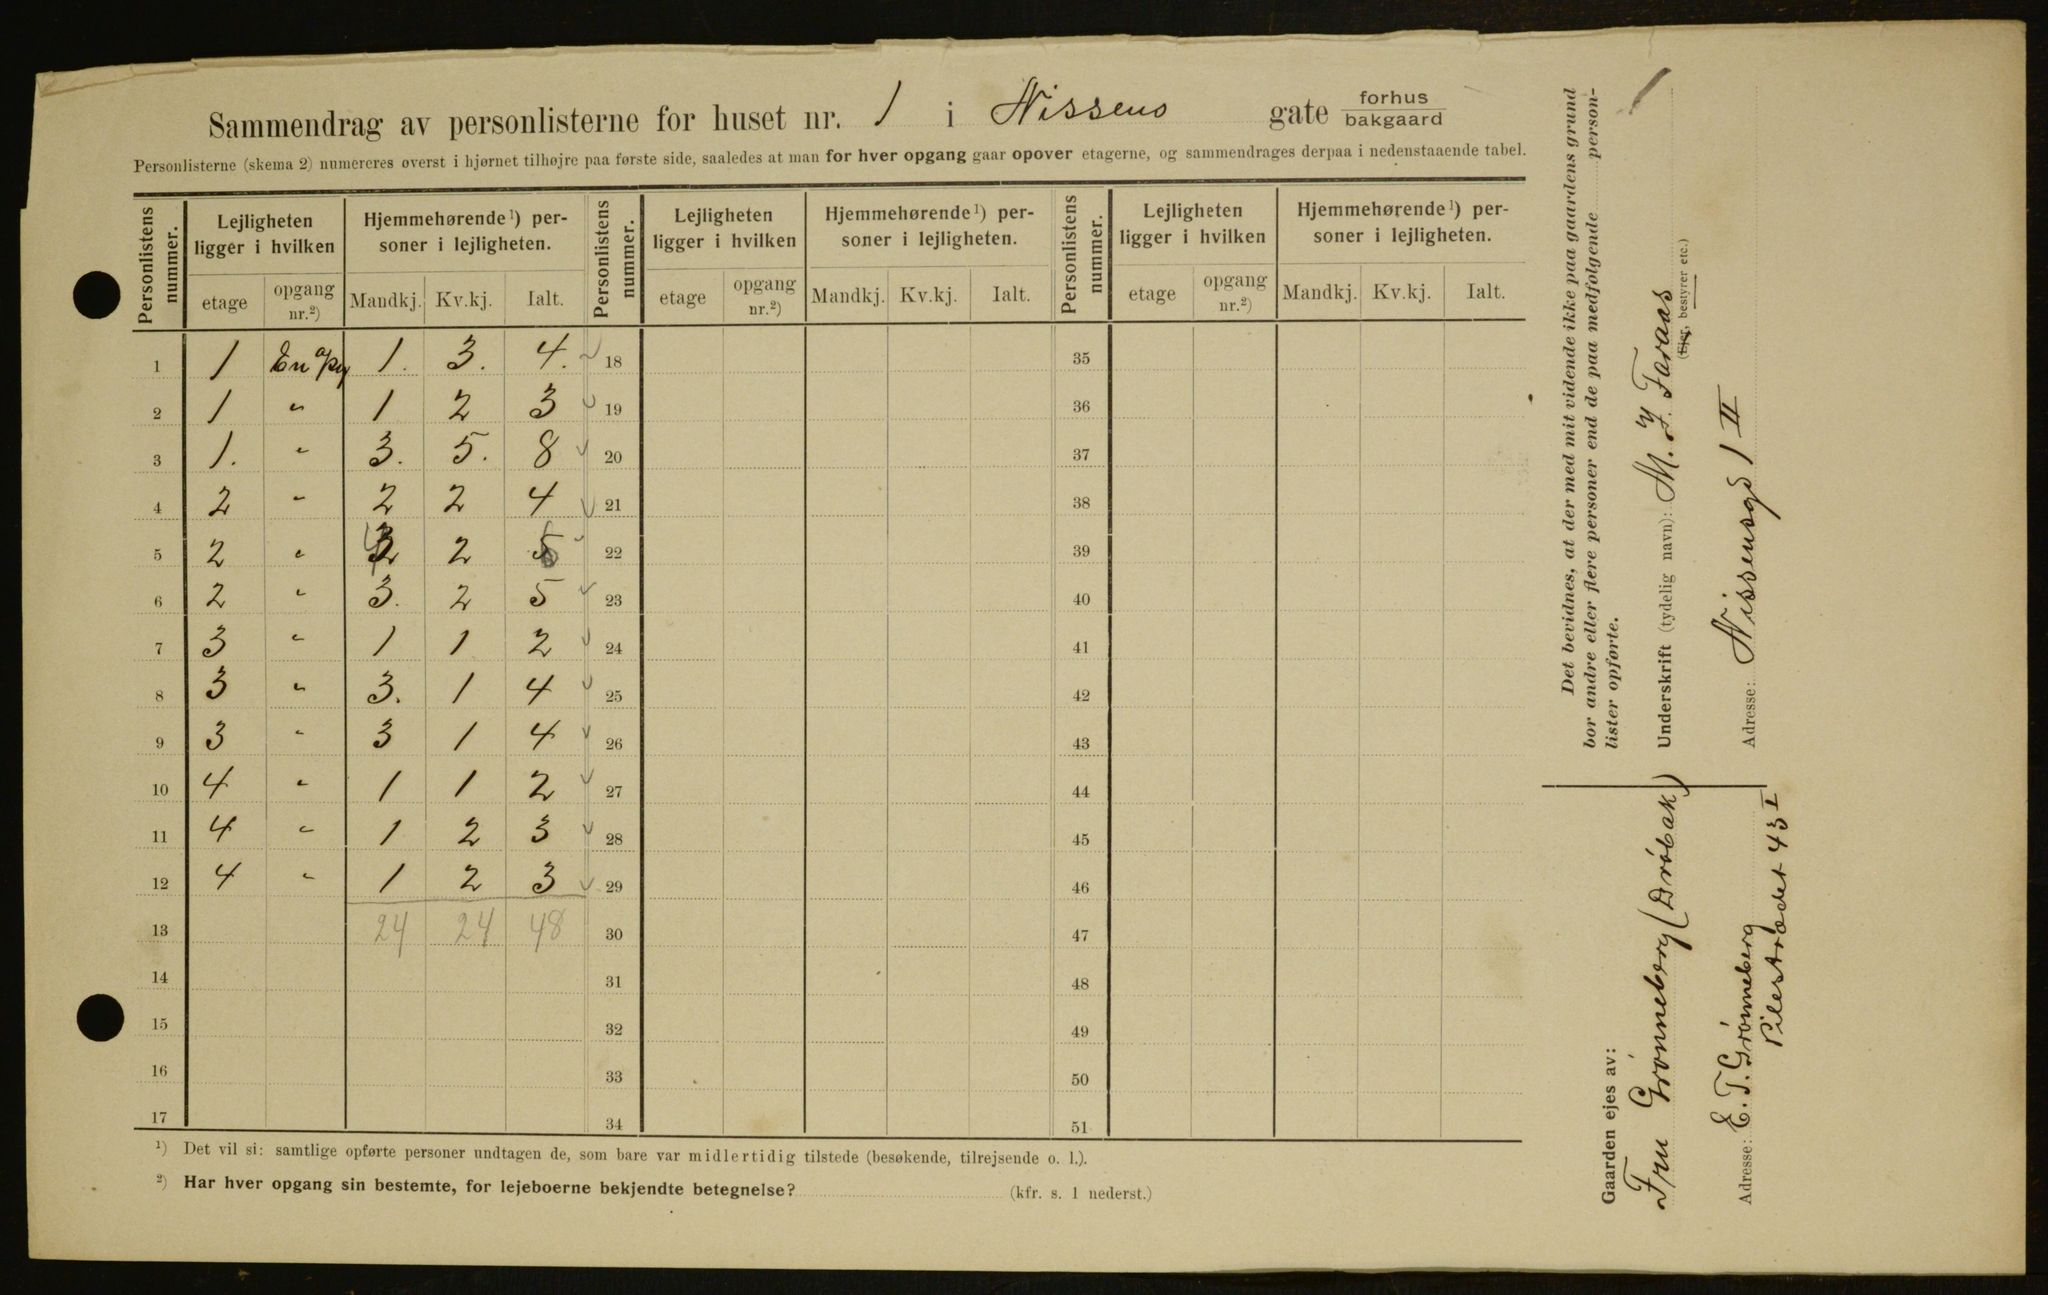 Sammendrag av personlisterne for huset nr. 1 i Nissens gate forhus bakgaard
Personlisterne (skema 2) numereres øverst i hjørnet tilhøjre paa første side, saaledes at man for hver opgang gaar opover etagerne, og sammendrages derpaa i nedenstaaende tabel.
Personlistens nummer. Lejligheten ligger i hvilken Hjemmehørende¹) personer i lejligheten. Personlistens nummer. Lejligheten ligger i hvilken Hjemmehørende¹) personer i lejligheten. Personlistens nummer. Lejligheten ligger i hvilken Hjemmehørende¹) personer i lejligheten.
etage opgang nr.²) Mandkj. Kv.kj. Ialt. etage opgang nr.²) Mandkj. Kv.kj. Ialt. etage opgang nr.²) Mandkj. Kv.kj. Ialt.
1 1 En opg 1. 3. 4. 18 35
2 1 " 1 2 3 19 36
3 1. " 3. 5. 8 20 37
4 2 " 2 2 4 21 38
5 2 " 4 2 6 22 39
6 2 " 3. 2 5 23 40
7 3 " 1 1 2 24 41
8 3 " 3. 1 4 25 42
9 3 " 3 1 4 26 43
10 4 " 1 1 2 27 44
11 4 " 1 2 3 28 45
12 4 " 1 2 3 29 46
13 24 24 48 30 47
14 31 48
15 32 49
16 33 50
17 34 51
¹) Det vil si: samtlige opførte personer undtagen de, som bare var midlertidig tilstede (besøkende, tilrejsende o. l.).
²) Har hver opgang sin bestemte, for lejeboerne bekjendte betegnelse? (kfr. s. 1 nederst.)
1
Det bevidnes, at der med mit vidende ikke paa gaardens grund
bor andre eller flere personer end de paa medfølgende person-
lister opførte.
Underskrift (tydelig navn): M. F. Faraas
(Ejer, bestyrer etc.)
Adresse: Nissensgd 1 II
Gaarden ejes av:
Fru Grønneberg (Drøbak)
Adresse: E. T. Grønneberg
Pilestrædet 43 I